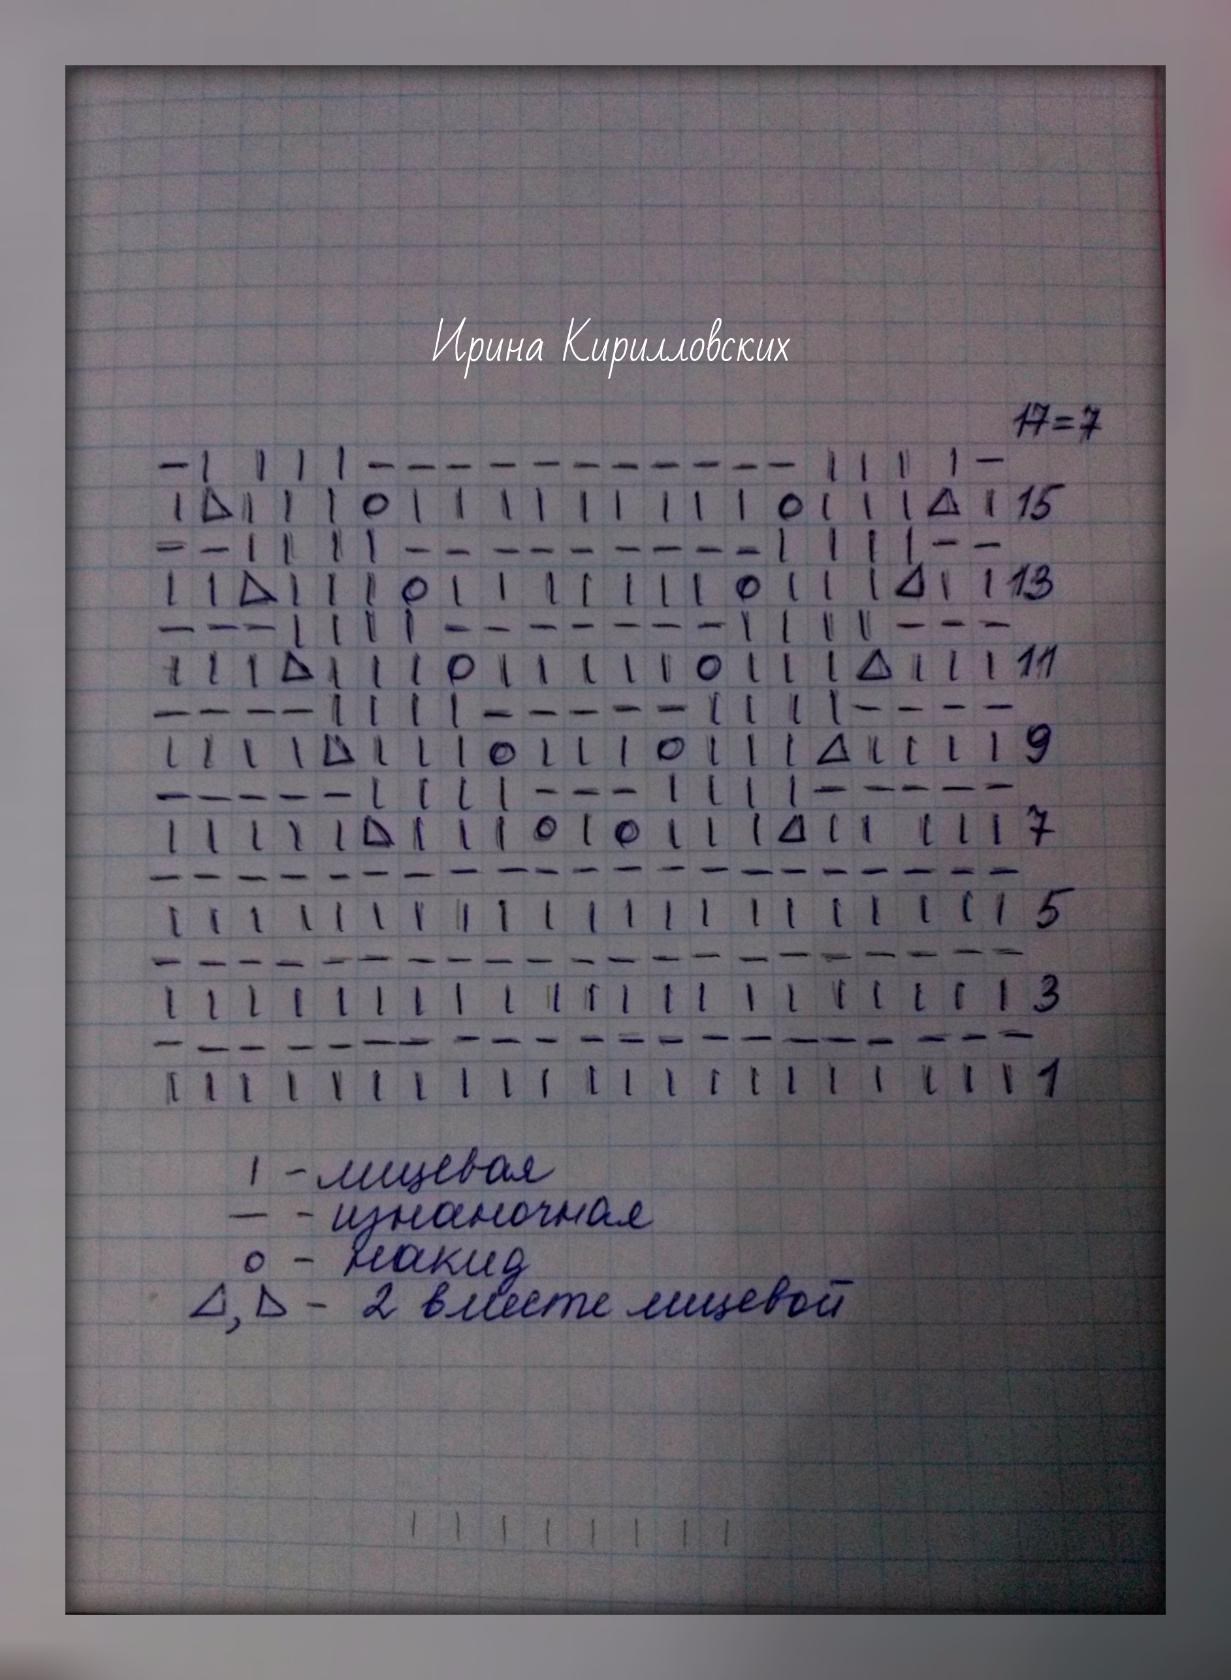 Ирина Кирилловских
17=7
— I I I I — — — — — — — — — — — I I I I —
I ◺ I I I O I I I I I I I I I O I I I ⊿ I 15
— — I I I I — — — — — — — — — I I I I — —
I I ◺ I I I O I I I I I I I O I I I ⊿ I I 13
— — — I I I I — — — — — — — I I I I — — —
I I I ◺ I I I O I I I I I O I I I ⊿ I I I 11
— — — — I I I I — — — — — I I I I — — — —
I I I I ◺ I I I O I I I O I I I ⊿ I I I I 9
— — — — — I I I I — — — I I I I — — — — —
I I I I I ◺ I I I O I O I I I ⊿ I I I I I 7
— — — — — — — — — — — — — — — — — — — — —
I I I I I I I I I I I I I I I I I I I I I 5
— — — — — — — — — — — — — — — — — — — — —
I I I I I I I I I I I I I I I I I I I I I 3
— — — — — — — — — — — — — — — — — — — — —
I I I I I I I I I I I I I I I I I I I I I 1
I - лицевая
— - изнаночная
о - накид
⊿, ◺ - 2 вместе лицевой
I I I I I I I I